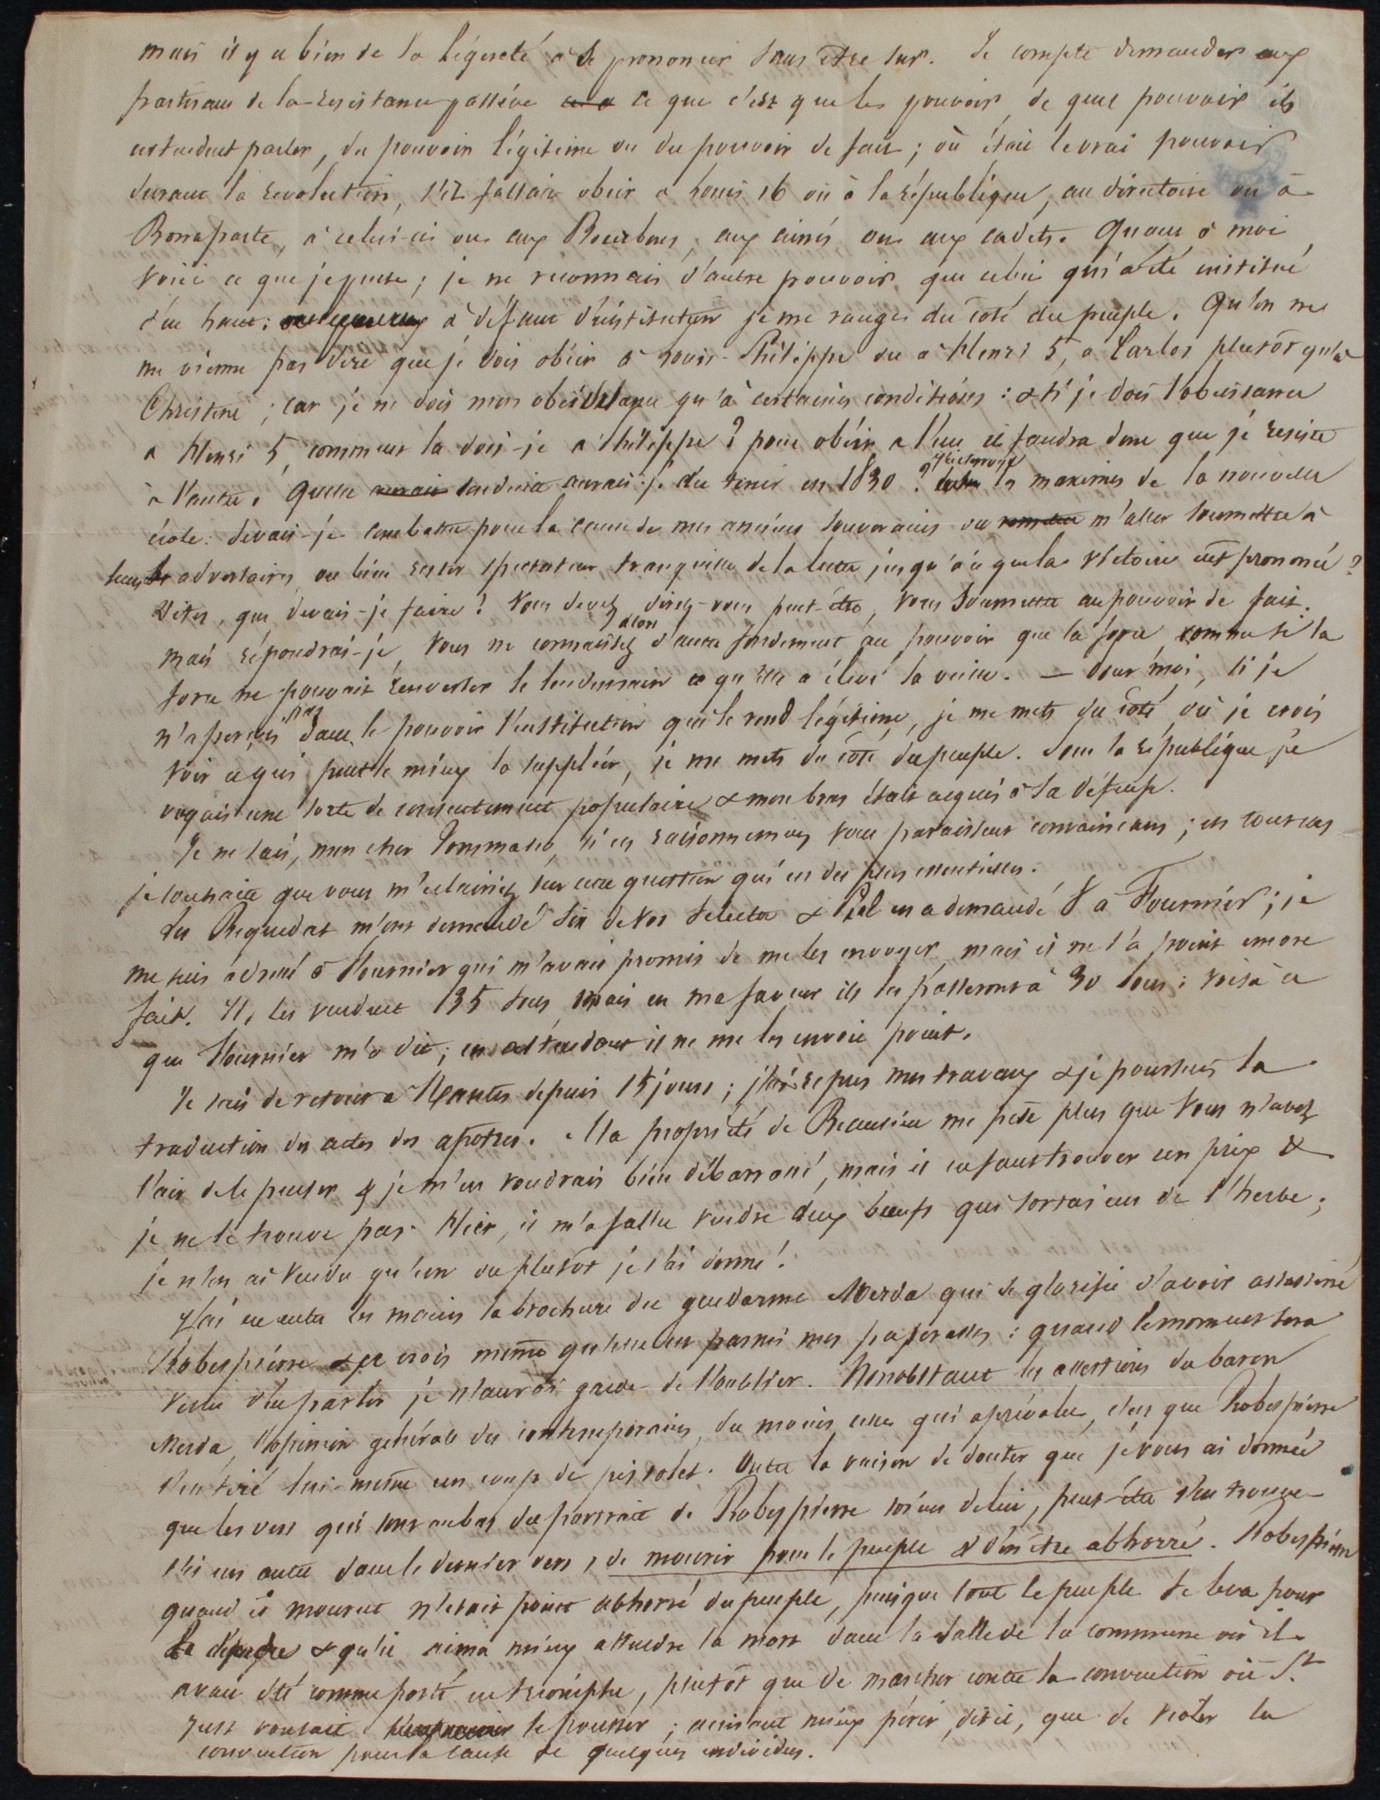 mais il y a bien de la légereté à se prononcer sans être sur. Je compte demander aux
partisans de la resistance passive ce que c'est que les pouvoirs, de quel pouvoir ils
entendent parler, du pouvoir légitime ou du pouvoir de fait ; où était le vrai pouvoir
durant la revolution, s'il fallait obeir à Louis 16 ou à la république, au directoire ou à
Bonaparte, à celui-ci ou aux Bourbons, aux ainés ou aux cadets. Quant à moi
voici ce que je pense ; je ne reconnais d'autre pouvoir que celui qui a été institué
d'en haut : à défaut d'institution je me range du coté du peuple. Qu'on ne
me vienne pas dire que je dois obéir à Louis-Philippe ou à Henri 5, à Carlos plutôt qu'à
Christine ; car je ne dois mon obéissance qu'à certaines conditions : & si je dois l'obeissance
à Henri 5, comment la dois-je à Philippe ? pour obéir a l'un il faudra donc que je resiste
à l'autre. Quelle conduite aurais-je du tenir en 1830 ? les maximes de la nouvelle
école : devais-je combattre pour la cause de mes anciens souverains ou m'aller soumettre à
leurs adversaires, ou bien rester spectateur tranquille de la lutte jusqu'à ce que la victoire eût prononcé ?
Dites, que devais-je faire ? Vous devez, direz-vous peut-être, vous soumettre au pouvoir de fait.
mais répondrai-je vous ne connaissez alors d'autre fondement au pouvoir que la force comme si la
force ne pouvait renverser le lendemain ce qu'elle a élevé la veille. — Pour moi, si je
n'aperçois pas dans le pouvoir l'institution qui le rend légitime, je me mets du coté où je crois
voir ce qui peut le mieux la suppléer, je me mets du côté du peuple. Sous la république je
voyais une sorte de consentement populaire & mon bras était acquis à sa défense.
Je ne sais, mon cher Tommaseo, si ces raisonnemens vous paraissent convaincans ; en tout cas
je souhaite que vous m'éclairiez sur cette question qui est des plus essentielles.
Les Requedat m'ont demandé six de vos Selecta & Piel en a demandé 8 a Fournier ; je
me suis adressé à Fournier qui m'avait promis de me les envoyer, mais il ne l'a point encore
fait. Ils les vendent 35 sous mais en ma faveur ils les passeront à 30 sous : voilà ce
que Fournier m'a dit ; en attendant il ne me les envoie point.
Je suis de retour à Nantes depuis 15 jours ; j'ai repris mes travaux & je poursuis la
traduction des actes des apotres. Ma propriété de Beaulieu me pèse plus que vous n'avez
l'air de le penser & je m'en voudrais bien débarrassé, mais il en faut trouver un prix &
je ne le trouve pas. Hier, il m'a fallu vendre deux bœufs qui sortaient de l'herbe ;
je n'en ai vendu qu'un ou plutôt je l'ai donné !
J'ai eu entre les mains la brochure du gendarme Merda qui se glorifie d'avoir assassiné
Robespierre & je crois même qu'elle est parmi mes paperasses : quand le moment sera
venu d'en parler je n'aurai garde de l'oublier. Nonobstant les assertions du baron
Merda, l'opinion générale des contemporains, du moins celle qui a prévalu, c'est que Robespierre
s'est tiré lui-même un coup de pistolet. Outre la raison de douter que je vous ai donnée
que les vers qui sont au bas du portrait de Robespierre soient de lui, peut-être s'en trouve-
t'il un autre dans le dernier vers, de mourir pour le peuple & d'en être abhorré. Robespierre
quand il mourut n'était point abhorré du peuple, puisque tout le peuple se leva pour
le défendre & qu'il aima mieux attendre la mort dans la salle de la commune où il
avait été comme porté en triomphe, plutôt que de marcher contre la convention où St
Just voulait le pousser ; aimant mieux périr, dit-il, que de violer la
convention pour la cause de quelques individus.